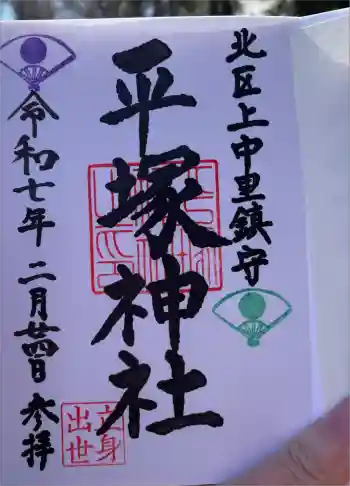 北区上中里鎮守
平塚神社
令和七年二月廿四日参拝
立身
出世